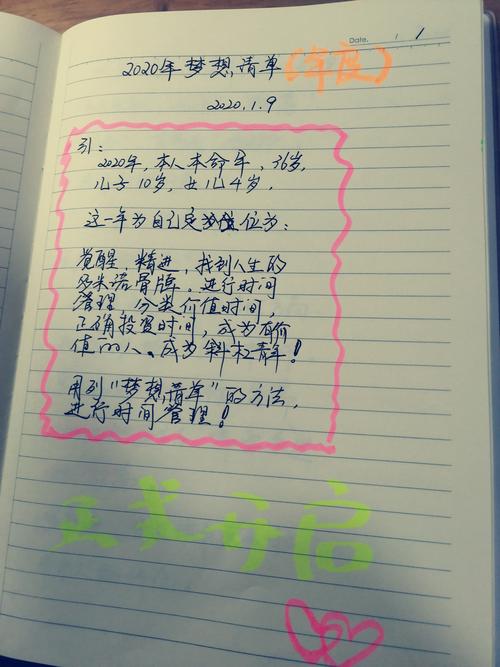 Date. 1 1
2020年梦想清单(年度)
2020.1.9
引:
2020年,本人本命年,36岁,
儿子10岁,女儿4岁,
这一年为自己定位为:
觉醒,精进,找到人生的
多米诺骨牌,进行时间
管理,分类价值时间,
正确投资时间,成为有价
值的人、成为斜杠青年!
用列“梦想清单”的方法,
进行时间管理!
正式开启